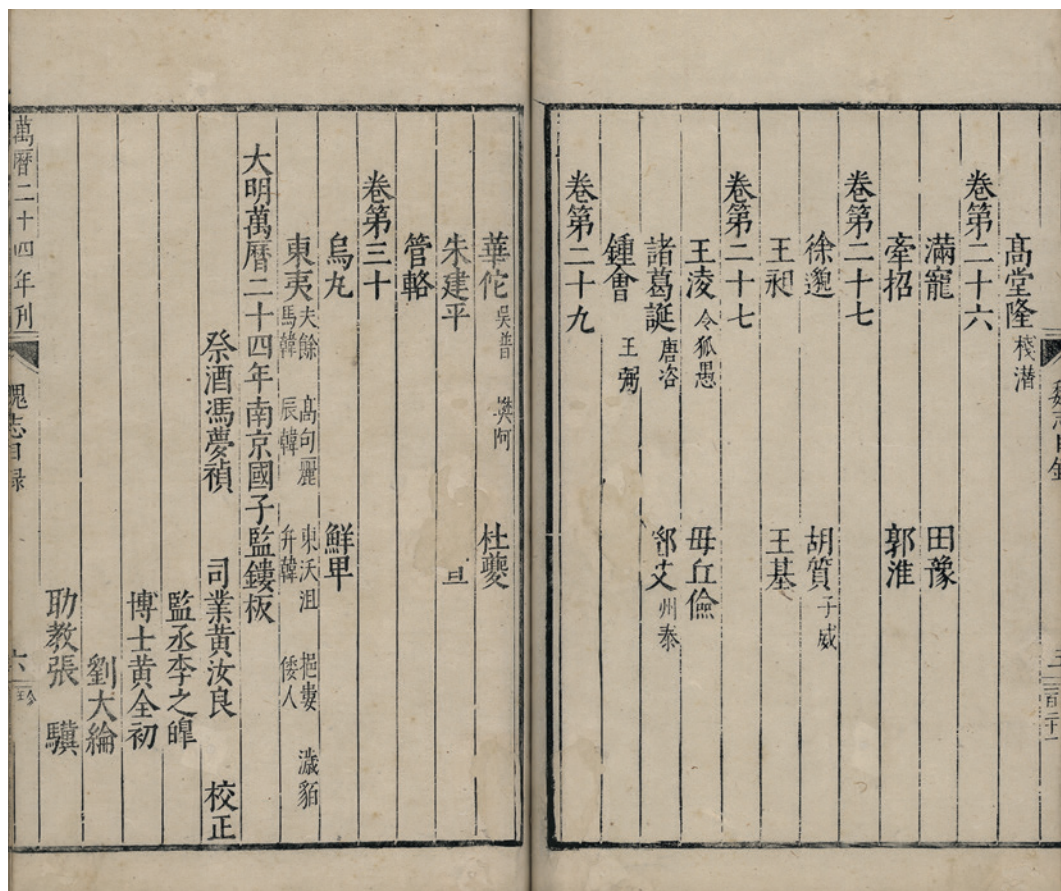 魏志目錄
高堂隆 棧潛
卷第二十六
滿寵 田豫
牽招 郭淮
卷第二十七
徐邈 胡質 子威
王昶 王基
卷第二十七
王凌 令狐愚 毋丘儉
諸葛誕 唐咨 鄧艾 州泰
鍾會 王弼
卷第二十九
華佗 吳普 樊阿 杜夔
朱建平
管輅
卷第三十
烏丸 鮮卑
東夷 夫餘 高句麗 東沃沮 挹婁 濊貊
馬韓 辰韓 弁韓 倭人
大明萬曆二十四年南京國子監鏤板
祭酒馮夢禎 司業黃汝良 校正
監丞李之皡
博士黃全初
劉大綸
助教張 驥
萬曆二十四年刊 魏志目錄 六